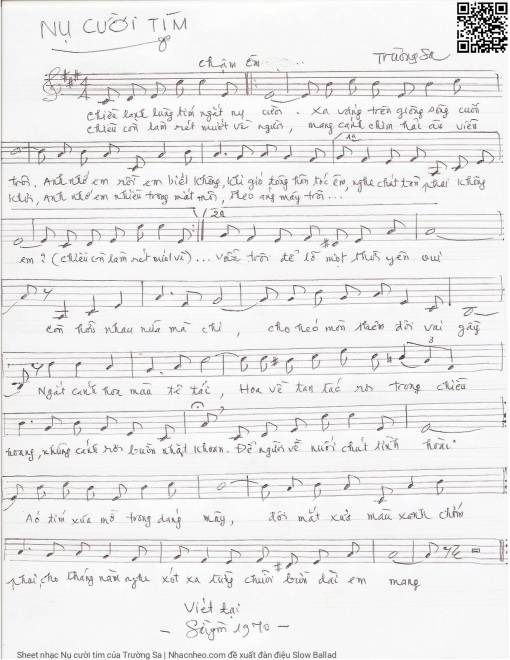 NỤ CƯỜI TÍM
chậm êm ....
Trường Sa
chiều lạnh lùng tím ngát nụ cười. xa vắng trên giòng sông cuối
chiều còn làm rét mướt về người, mang cánh chim hải âu viễn
trôi. Anh nhớ em rồi em biết không, khi gió tóc em, nghe chút phai không
khơi, Anh nhớ em nhiều trong mắt môi, theo áng mây trôi...
1a
2a
em? (chiều còn làm rét mướt về)... vẫn trôi để lỡ một thuở yên vui
còn nhau nữa mà chi, cho héo mòn thêm đôi vai gầy
Ngát cánh hoa màu tê tái, Hoa về tan tác rơi trong chiều
3
hoang, những cánh rơi buồn nhặt khoan. Để người về nuối chút tình hoài
Áo tím xưa mờ trong dáng mây, đôi mắt xưa màu xanh chớm
phai, cho tháng năm nghe xót xa từng chuỗi buồn dài em mang
Viết tại
- Sàigòn 1970 -
Sheet nhạc Nụ cười tím của Trường Sa | Nhacnheo.com đề xuất đàn điệu Slow Ballad